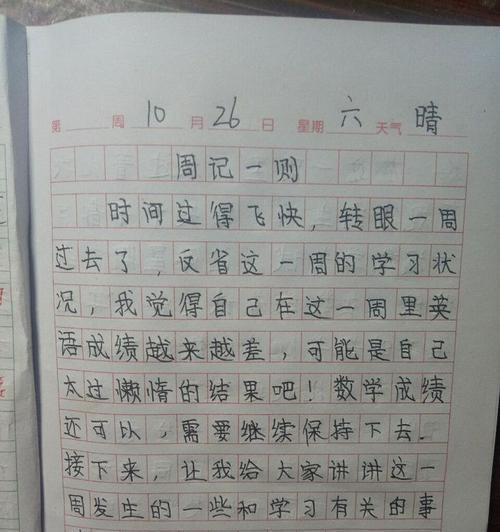 第 周 10 月 26 日 星期 六 天气 晴
周记一则
时间过得飞快，转眼一周
过去了，反省这一周的学习状
况，我觉得自己在这一周里英
语成绩越来越差，可能是自己
太过懒惰的结果吧！数学成绩
还可以，需要继续保持下去.
接下来，让我给大家讲讲这一
周发生的一些和学习有关的事